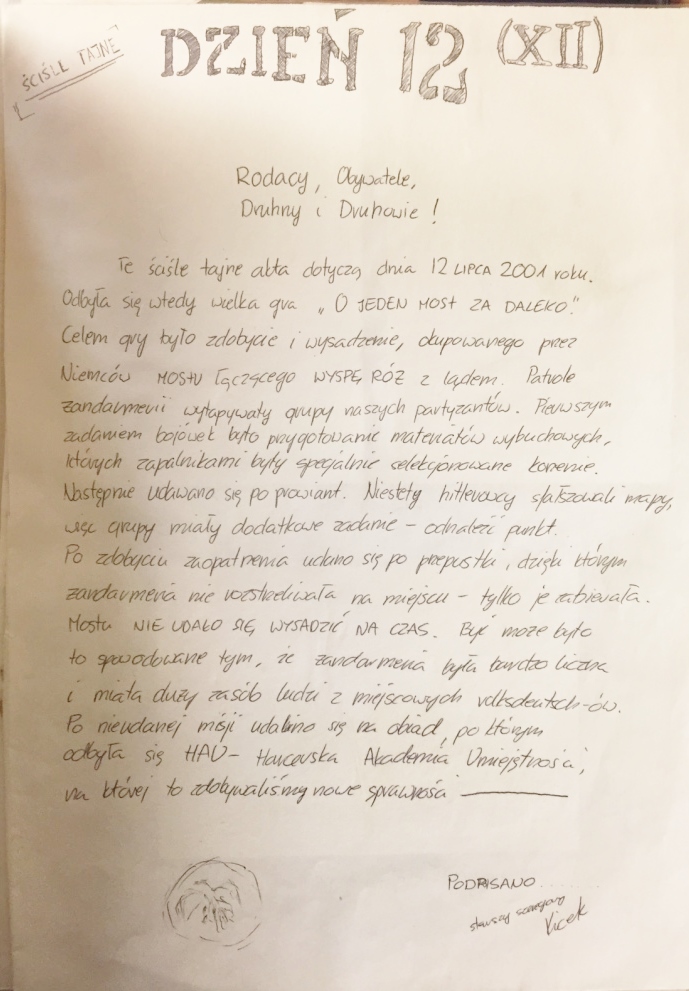 ŚCIŚLE TAJNE
DZIEŃ 12 (XII)
Rodacy, Obywatele,
Druhny i Druhowie!
Te ściśle tajne akta dotyczą dnia 12 LIPCA 2001 roku.
Odbyła się wtedy wielka gra „O JEDEN MOST ZA DALEKO".
Celem gry było zdobycie i wysadzenie, okupowanego przez
Niemców MOSTU łączącego WYSPĘ RÓŻ z lądem. Patrole
żandarmerii wyłapywały grupy naszych partyzantów. Pierwszym
zadaniem bojówek było przygotowanie materiałów wybuchowych,
których zapalnikami były specjalnie selekcjonowane korzenie.
Następnie udawano się po prowiant. Niestety hitlerowcy sfałszowali mapy,
więc grupy miały dodatkowe zadanie - odnaleźć punkt.
Po zdobyciu zaopatrzenia udano się po przepustki, dzięki którym
żandarmeria nie rozstrzeliwała na miejscu - tylko je zabierała.
MOSTU NIE UDAŁO SIĘ WYSADZIĆ NA CZAS. Być może było
to spowodowane tym, że żandarmeria była bardzo liczna
i miała duży zasób ludzi z miejscowych volksdeutsch-ów.
Po nieudanej misji udaliśmy się na obiad, po którym
odbyła się HAU- Harcerska Akademia Umiejętności,
na której to zdobywaliśmy nowe sprawności
PODPISANO
starszy szeregowy
Kicek